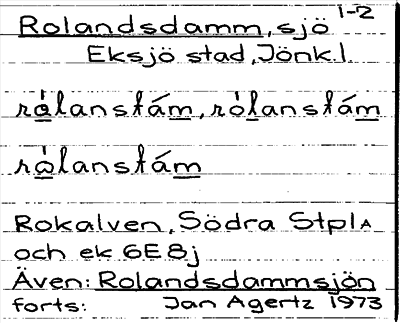 1-2
Rolandsdamm, sjö
Eksjö stad, Jönk.l.
rå̀lanstám, rò̀lanstám
rå̀lanstám
Rokalven, Södra StplA
och ek 6E8j
Även: Rolandsdammsjön
forts: Jan Agertz 1973